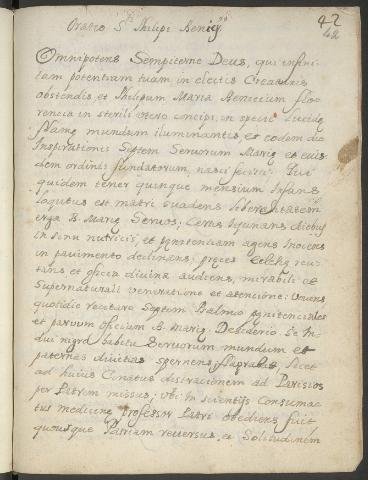 Oratio S. Philipi Benicij
42
42
Omnipotens Sempiterne Deus, qui infini
tam potentiam tuam in electis Creaturis
ostendis, et Philipum Maria Benicium Flo
rencia in sterili utero concipi, in specie Lucidę
Flamę mundum iluminantis, et eodem die
Inspirationis Septem Servorum Marię et eius
dem ordinis fundatorum, nasci fecisti; Qui
quidem tener quinque mensium Infans
loqutus est matri suadens liberalitatem
erga B. Marię Servos; Certis Ieiunans diebus
in sinu nutricis, et pęnitentiam agens Inocens
in pavimento declinans, pręces reci
tans et officia divina audiens, mirabili ac
Supernaturali veneratione et atencione: Omens
quotidie recitare Septem Psalmos pęnitenciales
et parvum oficium B. Marię. Desiderio se In
dui nigro habitu Servorum mundum et
paternas divitias spernens, licet
ad huius Conatus distractionem ad Parisios
per Patrem missus, ubi in scientijs Consumac
tus medicinę professor Patri obediens fuit
quousque Patriam reversus, ac Solitudinem